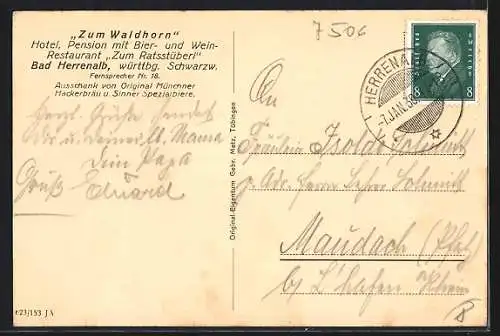 7506
„Zum Waldhorn“
Hotel, Pension mit Bier- und Wein-
Restaurant „Zum Ratsstüberl“
Bad Herrenalb, württbg. Schwarzw.
Fernsprecher Nr. 18.
Ausschank von Original Münchner
Hackerbräu u. Sinner Spezialbiere.
Herzl. Grüße sendet
dir u. deiner lb. Mama
Dein Papa
Gruß Eduard
Original-Eigentum Gebr. Metz, Tübingen
HERRENALB
-7.JAN.30
8 8
Fräulein Isolde Schmitt
p. Adr. Herrn Lehrer Schmitt
Maudach (Pfalz)
b/ L'hafen Rhein
r23/153 JA